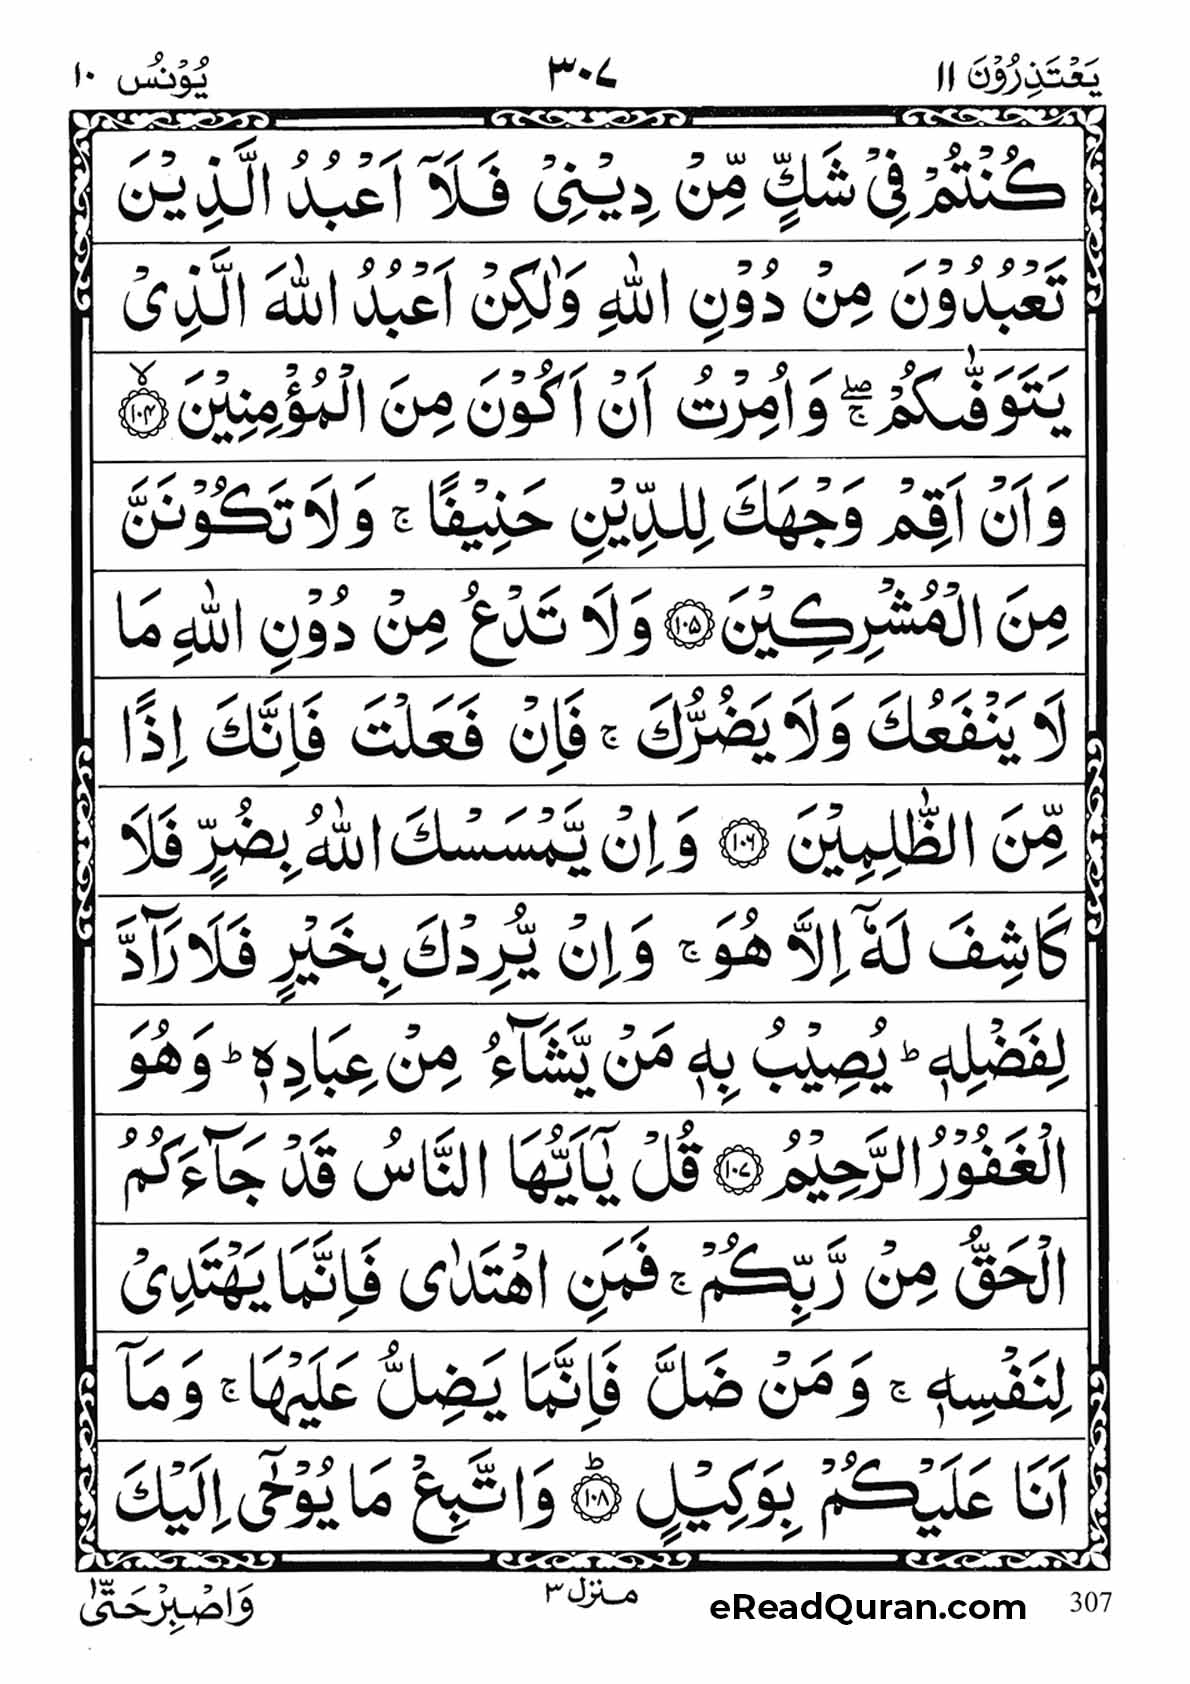 يَعْتَذِرُوْنَ ١١
٣٠٧
يُوْنُس ١٠
كُنْتُمْ فِیْ شَكٍّ مِّنْ دِیْنِیْ فَلَاۤ اَعْبُدُ الَّذِیْنَ
تَعْبُدُوْنَ مِنْ دُوْنِ اللّٰهِ وَلٰكِنْ اَعْبُدُ اللّٰهَ الَّذِیْ
یَتَوَفّٰىكُمْ ۖۚ وَاُمِرْتُ اَنْ اَكُوْنَ مِنَ الْمُؤْمِنِیْنَ ۙ﴿۱۰۴﴾
وَاَنْ اَقِمْ وَجْهَكَ لِلدِّیْنِ حَنِیْفًا ۚ وَلَا تَكُوْنَنَّ
مِنَ الْمُشْرِكِیْنَ ﴿۱۰۵﴾ وَلَا تَدْعُ مِنْ دُوْنِ اللّٰهِ مَا
لَا یَنْفَعُكَ وَلَا یَضُرُّكَ ۚ فَاِنْ فَعَلْتَ فَاِنَّكَ اِذًا
مِّنَ الظّٰلِمِیْنَ ﴿۱۰۶﴾ وَاِنْ یَّمْسَسْكَ اللّٰهُ بِضُرٍّ فَلَا
كَاشِفَ لَهٗۤ اِلَّا هُوَ ۚ وَاِنْ یُّرِدْكَ بِخَیْرٍ فَلَا رَآدَّ
لِفَضْلِهٖ ؕ یُصِیْبُ بِهٖ مَنْ یَّشَآءُ مِنْ عِبَادِهٖ ؕ وَهُوَ
الْغَفُوْرُ الرَّحِیْمُ ﴿۱۰۷﴾ قُلْ یٰۤاَیُّهَا النَّاسُ قَدْ جَآءَكُمُ
الْحَقُّ مِنْ رَّبِّكُمْ ۚ فَمَنِ اهْتَدٰی فَاِنَّمَا یَهْتَدِیْ
لِنَفْسِهٖ ۚ وَمَنْ ضَلَّ فَاِنَّمَا یَضِلُّ عَلَیْهَا ۚ وَمَاۤ
اَنَا عَلَیْكُمْ بِوَكِیْلٍ ؕ﴿۱۰۸﴾ وَاتَّبِعْ مَا یُوْحٰۤی اِلَیْكَ
وَاصْبِرْ حَتّٰی
منزل ٣
eReadQuran.com
307